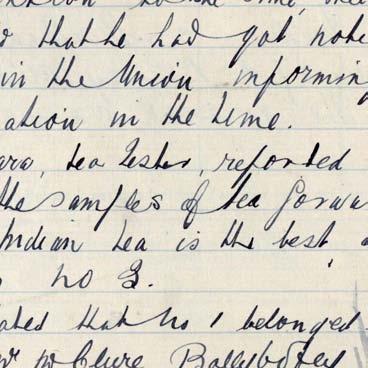 that he had got note
in the Union informin
ation in the time.
ara, tea Tester, reported
the samples of tea forwa
Indian tea is the best,
no 3.
ated that No 1 belonged
Mr McClure Ballybofey